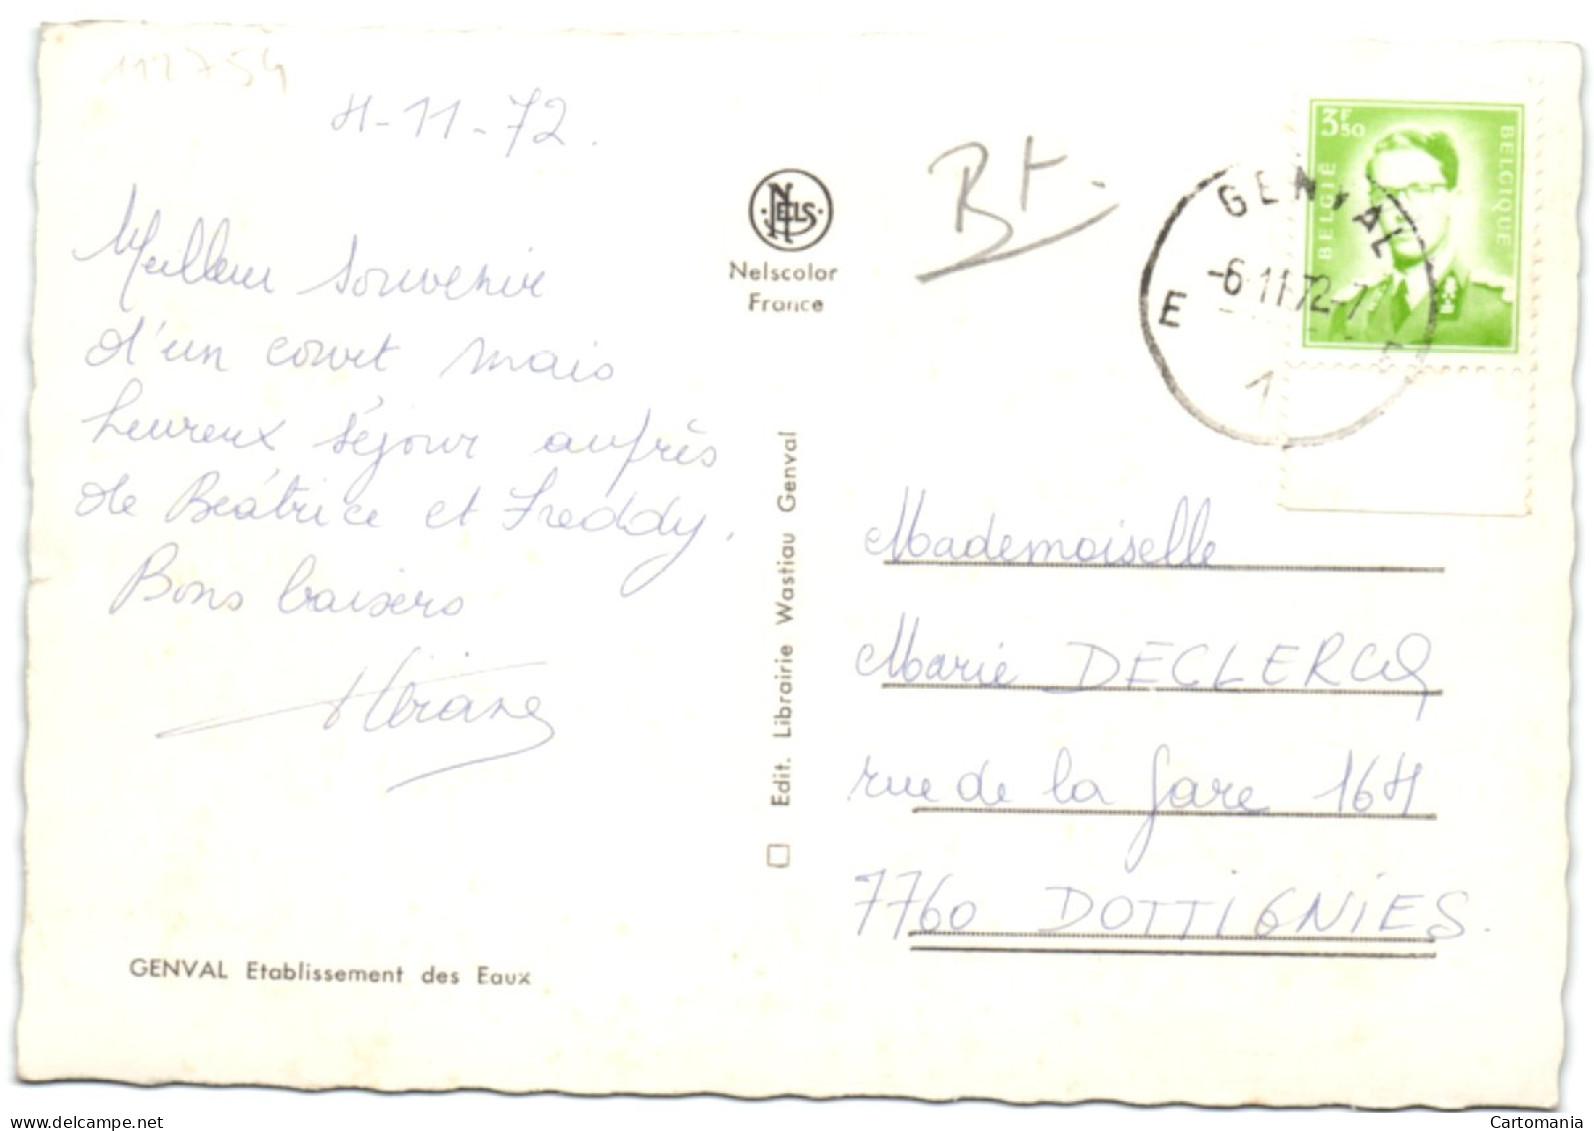 112754
4-11-72.
Meilleur souvenir
d'un court mais
heureux séjour auprès
de Béatrice et Freddy.
Bons baisers
NELS
Nelscolor
France
Edit. Librairie Wastiau Genval
GENVAL Etablissement des Eaux
Bt
3F50
BELGIË
BELGIQUE
GENVAL
-6.11.72-7
E
1
Mademoiselle
Marie DECLERCQ
rue de la Gare 164
7760 DOTTIGNIES.
Cartomania